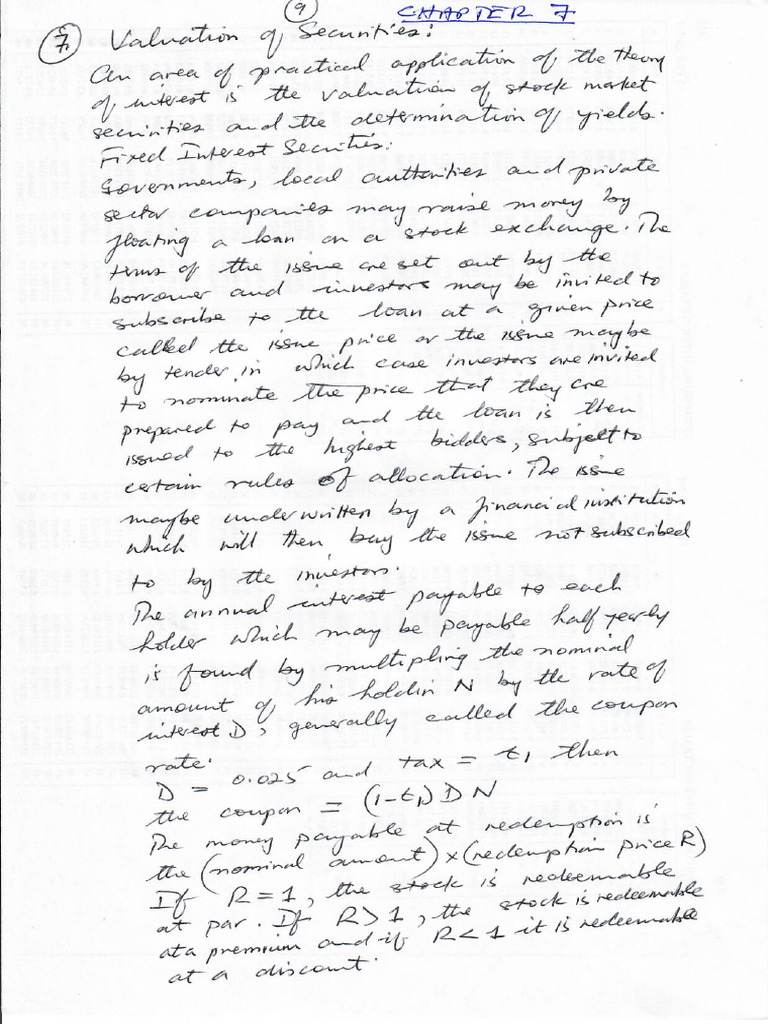 9
CHAPTER 7
7. Valuation of Securities:
An area of practical application of the theory
of interest is the valuation of stock market
securities and the determination of yields.
Fixed Interest Securities:
Governments, local authorities and private
sector companies may raise money by
floating a loan on a stock exchange. The
terms of the issue are set out by the
borrower and investors may be invited to
subscribe to the loan at a given price
called the issue price or the issue maybe
by tender, in which case investors are invited
to nominate the price that they are
prepared to pay and the loan is then
issued to the highest bidders, subject to
certain rules of allocation. The issue
maybe underwritten by a financial institution
which will then buy the issue not subscribed
to by the investors.
The annual interest payable to each
holder which may be payable half yearly
is found by multipling the nominal
amount of his holdin N by the rate of
interest D, generally called the coupon
rate.
D = 0.025 and tax = t₁ then
the coupon = (1-t₁) D N
The money payable at redemption is
the (nominal amount) x (redemption price R)
If R = 1, the stock is redeemable
at par. If R > 1, the stock is redeemable
at a premium and if R < 1 it is redeemable
at a discount.